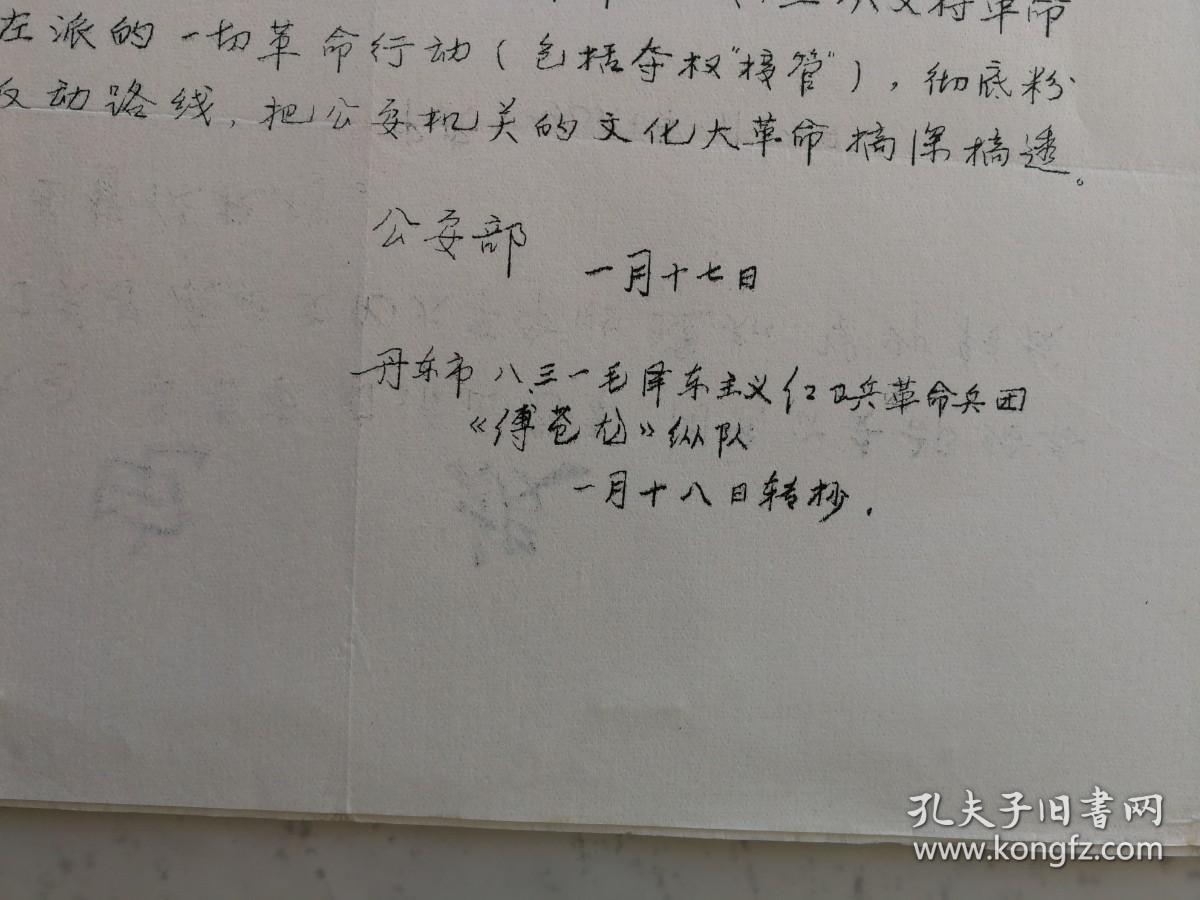 支持革命
左派的一切革命行动（包括夺权"接管"），彻底粉
反动路线，把公安机关的文化大革命搞深搞透。
公安部
一月十七日
丹东市八.三一毛泽东主义红卫兵革命兵团
《缚苍龙》纵队
一月十八日转抄.
孔夫子旧书网
www.kongfz.com